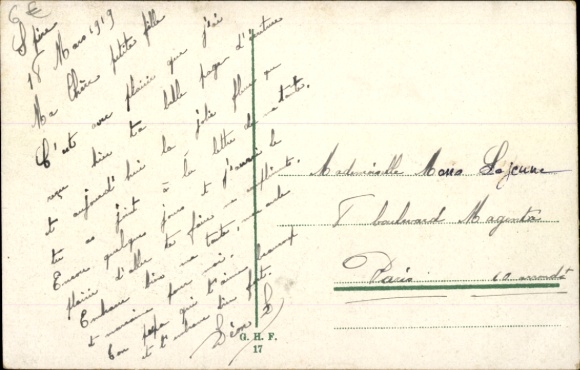 6 €
Spire
18 Mars 1919
Ma chère petite fille
C'est avec plaisir que j'ai
reçu hier ta belle page d'écriture
et aujourd'hui la jolie fleur que
tu as joint à la lettre de ta tante.
Encore quelques jours et j'aurai le
plaisir d'aller te faire
Embrasse bien ma tante, ton oncle
et marraine pour moi.
Ton papa qui t'aime beaucoup
et t'embrasse bien fort.
Léon
Mademoiselle Lejeune
7 boulevard Magenta
Paris 10 arrondt
G. H. F.
17